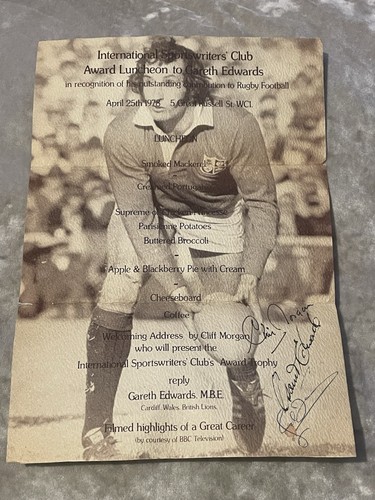 International Sportswriters' Club
Award Luncheon to Gareth Edwards
in recognition of his outstanding contribution to Rugby Football
April 25th 1978 5, Great Russell St. WC1.
LUNCHEON
Smoked Mackerel
Creamed Portugaise
Supreme of Chicken
Parisienne Potatoes
Buttered Broccoli
–
Apple & Blackberry Pie with Cream
–
Cheeseboard
Coffee
Welcoming Address by Cliff Morgan
who will present the
International Sportswriters' Club's Award Trophy
reply
Gareth Edwards. M.B.E.
Cardiff. Wales. British Lions.
Filmed highlights of a Great Career
(by courtesy of BBC Television)
Cliff Morgan